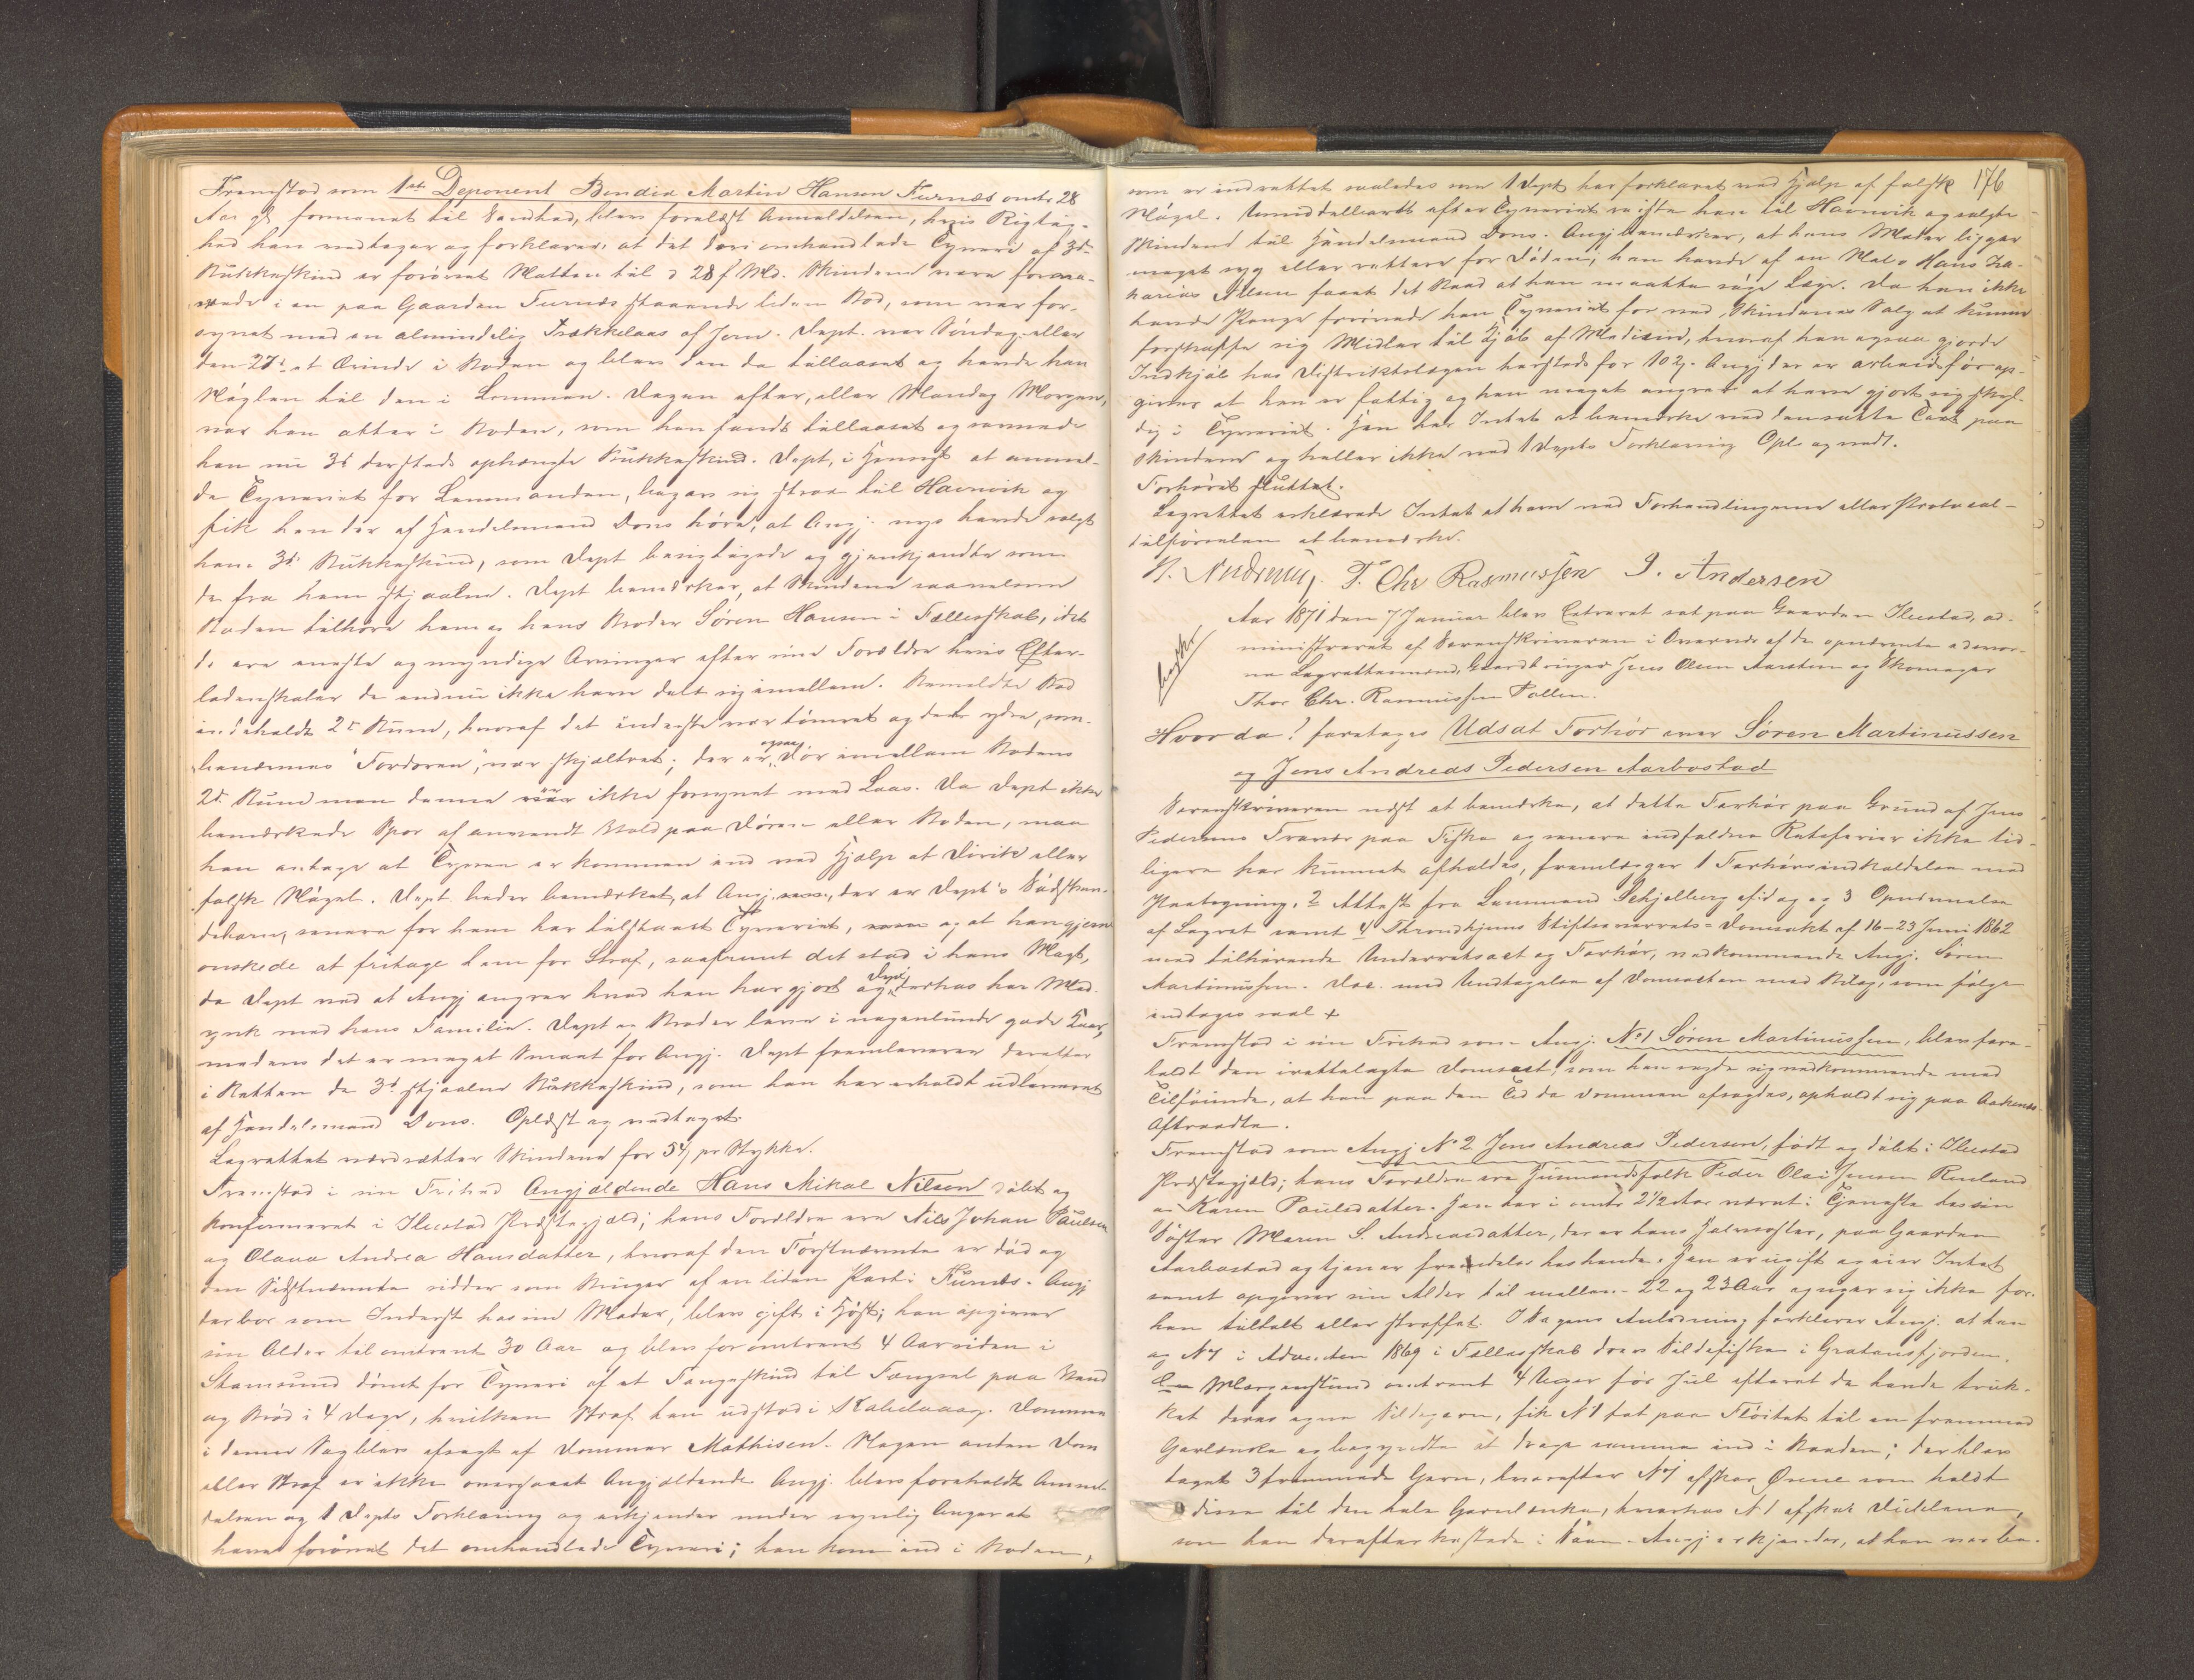 Fremstod som 1ste Deponent Bendix Martin Hansen Furnæs omtr 28
Aar gl, formanet til Sandhed, blev forelæst Anmeldelsen, hvis Rigtig-
hed han vedtager og forklarer, at det deri omhandlede Tyveri af 3de
Bukkeskind er forøvet Natten til d 28 f Md. Skindene vare forva-
rede i en paa Gaarden Furnæs staaende liden Bod, som var for-
synet med en almindelig Trækkelaas af Jern. Dept. var Søndag eller
den 27de et Ærinde i Boden og blev den da tillaaset og havde han
Nøglen til den i Lommen. Dagen efter, eller Mandag Morgen,
var han atter i Boden, som han fandt tillaaset og savnede
han nu 3de dersteds ophængte Bukkeskind. Dept, i Hensigt at anmel-
de Tyveriet for Lensmanden, begav sig strax til Havnvik og
fik han der af Handelsmand Dons høre, at Angj. nys havde solgt
ham 3de Bukkeskind, som Dept besigtigede og gjenkjendte som
de fra ham stjaalne. Dept bemærker, at Skindene saavelsom
Boden tilhøre ham og hans Broder Søren Hansen i Fællesskab, idet
de ere eneste og myndige Arvinger efter sine Forældre hvis Efter-
ladenskaber de endnu ikke have delt sig imellem. Bemeldte Bod
indeholdt 2de Rum, hvoraf det inderste var tømret og det ydre, som
benævnes "Fordoren", var skjeltret; der er ogsaa Dør imellem Bodens
2de Rum men denne var ikke forsynet med Laas. Da Dept ikke
bemærkede Spor af anvendt Vold paa Døren eller Boden, maa
han antage at Tyven er kommen ind ved Hjælp af Dirik eller
falsk Nøgel. Dept. beder bemærket, at Angj. der er Dept's Sødsken-
debarn, senere for ham har tilstaaet Tyveriet, og at han gjerne
ønskede at fritage ham for Straf, saafremt det stod i hans Magt,
da Dept ved at Angj angrer hvad han har gjort og Dept derhos har Med-
ynk med hans Familie. Dept og Broder leve i nogenlunde gode Kaar,
medens det er meget smaat for Angj. Dept fremleverer derefter
i Retten de 3de stjaalne Bukkeskind, som han har erholdt udleveret
af Handelsmand Dons. Oplæst og vedtaget.
Lagrettet værdsætter Skindene for 54 ß pr Stykke.
Fremstod i sin Frihed Angjældende Hans Mikal Nilsen døbt og
konfirmeret i Ibestad Præstegjæld; hans Forældre ere Nils Johan Paulsen
og Olava Andrea Hansdatter, hvoraf den Førstnævnte er død og
den Sidstnævnte sidder som Bruger af en liden Part i Furnæs. Angj
der bor som Inderst hos sin Moder, blev gift i Høst; han opgiver
sin Alder til omtrent 30 Aar og blev for omtrent 4 Aar siden i
Stamsund dømt for Tyveri af et Faageskind til Fængsel paa Vand
og Brød i 4 Dage, hvilken Straf han udstod i Kabelvaag. Dommen
i denne Sag blev afsagt af Dommer Mathisen. Nogen anden Dom
eller Straf er ikke overgaaet Angjældende. Angj. blev foreholdt Anmel-
delsen og 1 Depts Forklaring og erkjender under synlig Anger at
have forøvet det omhandlede Tyveri; han kom ind i Boden,
176
som er indrettet saaledes som 1 Dept har forklaret ved Hjælp af falsk
Nøgel. Umiddelbart efter Tyveriet reiste han til Havnvik og solgte
Skindene til Handelsmand Dons. Angj bemærker, at hans Moder ligger
meget syg eller rettere for Døden; han havde af en Mand Hans Za-
karias Olsen faaet det Raad at han maatte søge Læge. Da han ikke
havde Penge forøvede han Tyveriet for ved Skindenes Salg at kunne
forskaffe sig Midler til Kjøb af Medicin, hvoraf han ogsaa gjorde
Indkjøb hos Distriktslægen hersteds for 102 ß. Angj der er arbeidsfør op-
giver at han er fattig og han meget angrer at have gjort sig skyl-
dig i Tyveriet. Han har Intet at bemærke ved den satte Taxt paa
Skindene og heller ikke ved 1 Depts Forklaring Opl. og vedt.
Forhøret sluttet.
Lagrettet erklærede Intet at have ved Forhandlingerne eller Protocol-
tilførselen at bemærke.
T. Chr Rasmussen I. Andersen
Aar 1871 den 7 Januar blev Extraret sat paa Gaarden Ibestad, ad-
ministreret af Sorenskriveren i Overvær af de opnævnte edsvor-
ne Lagrettesmænd, Gaardbruger Jens Olsen Aarsten og Skomager
Thor Chr. Rasmussen Vollen.
Hvor da! foretoges Udsat Forhør over Søren Martinussen
og Jens Andreas Pedersen Aarbostad
Sorenskriveren næst at bemærke, at dette Forhør paa Grund af Jens
Pedersens Fravær paa Fiske og senere indfaldne Retsferier ikke tid-
ligere har kunnet afholdes, fremlægger 1 Forhørsindkaldelse med
Paategning, 2 Attest fra Lensmand Schjelberg og 3 Opnævnelse
af Lagret samt 4 Throndhjems Stiftsoverrets-Domsakt af 16-23 Juni 1862
med tilhørende Underretsact og Forhør, vedkommende Angj. Søren
Martinussen. Doc. med Undtagelse af Domsakten med Bilag, som følge
indtages saal +
Fremstod i sin Frihed som Angj. No 1 Søren Martinussen, blev fore-
holdt den irettelagte Domsact, som han sagde sig vedkommende med
Tilføiende, at han paa den Tid da Dommen afsagdes, opholdt sig paa
Aftraadte.
Fremstod som Angj No 2 Jens Andreas Pedersen, født og døbt i Ibestad
Præstegjæld; hans Forældre ere Husmandsfolk Peder Olai Jensen Renland
og Karen Paulsdatter. Han har i omtr 2 1/2 Aar været i Tjeneste hos sin
Søster Maren S. Andreasdatter, der er hans Halvsøster, paa Gaarden
Aarbostad og tjener fremdeles hos hende. Han er ugift og eier Intet
samt opgiver sin Alder til mellem 22 og 23 Aar og siger sig ikke før
han tiltalt eller straffet. I Sagens Anledning forklarer Angj. at han
og No 1 i Adventen 1869 i Fællesskab drev Sildefiske i Gratangsfjorden.
En Morgenstund omtrent 4 Uger før Jul efterat de havde truk-
ket deres egne Sildegarn, fik No 1 fat paa Fløitet til en fremmed
Garlænke og begyndte at drage samme ind i Baaden; der blev
taget 3 fremmede Garn, hvorefter No 1 afskar Ørene som holdt
disse til den hele Garnlænke, hvorhos No 1 afskar Dublene,
som han derefter kastede i Søen. Angj erkjender, at han var be-